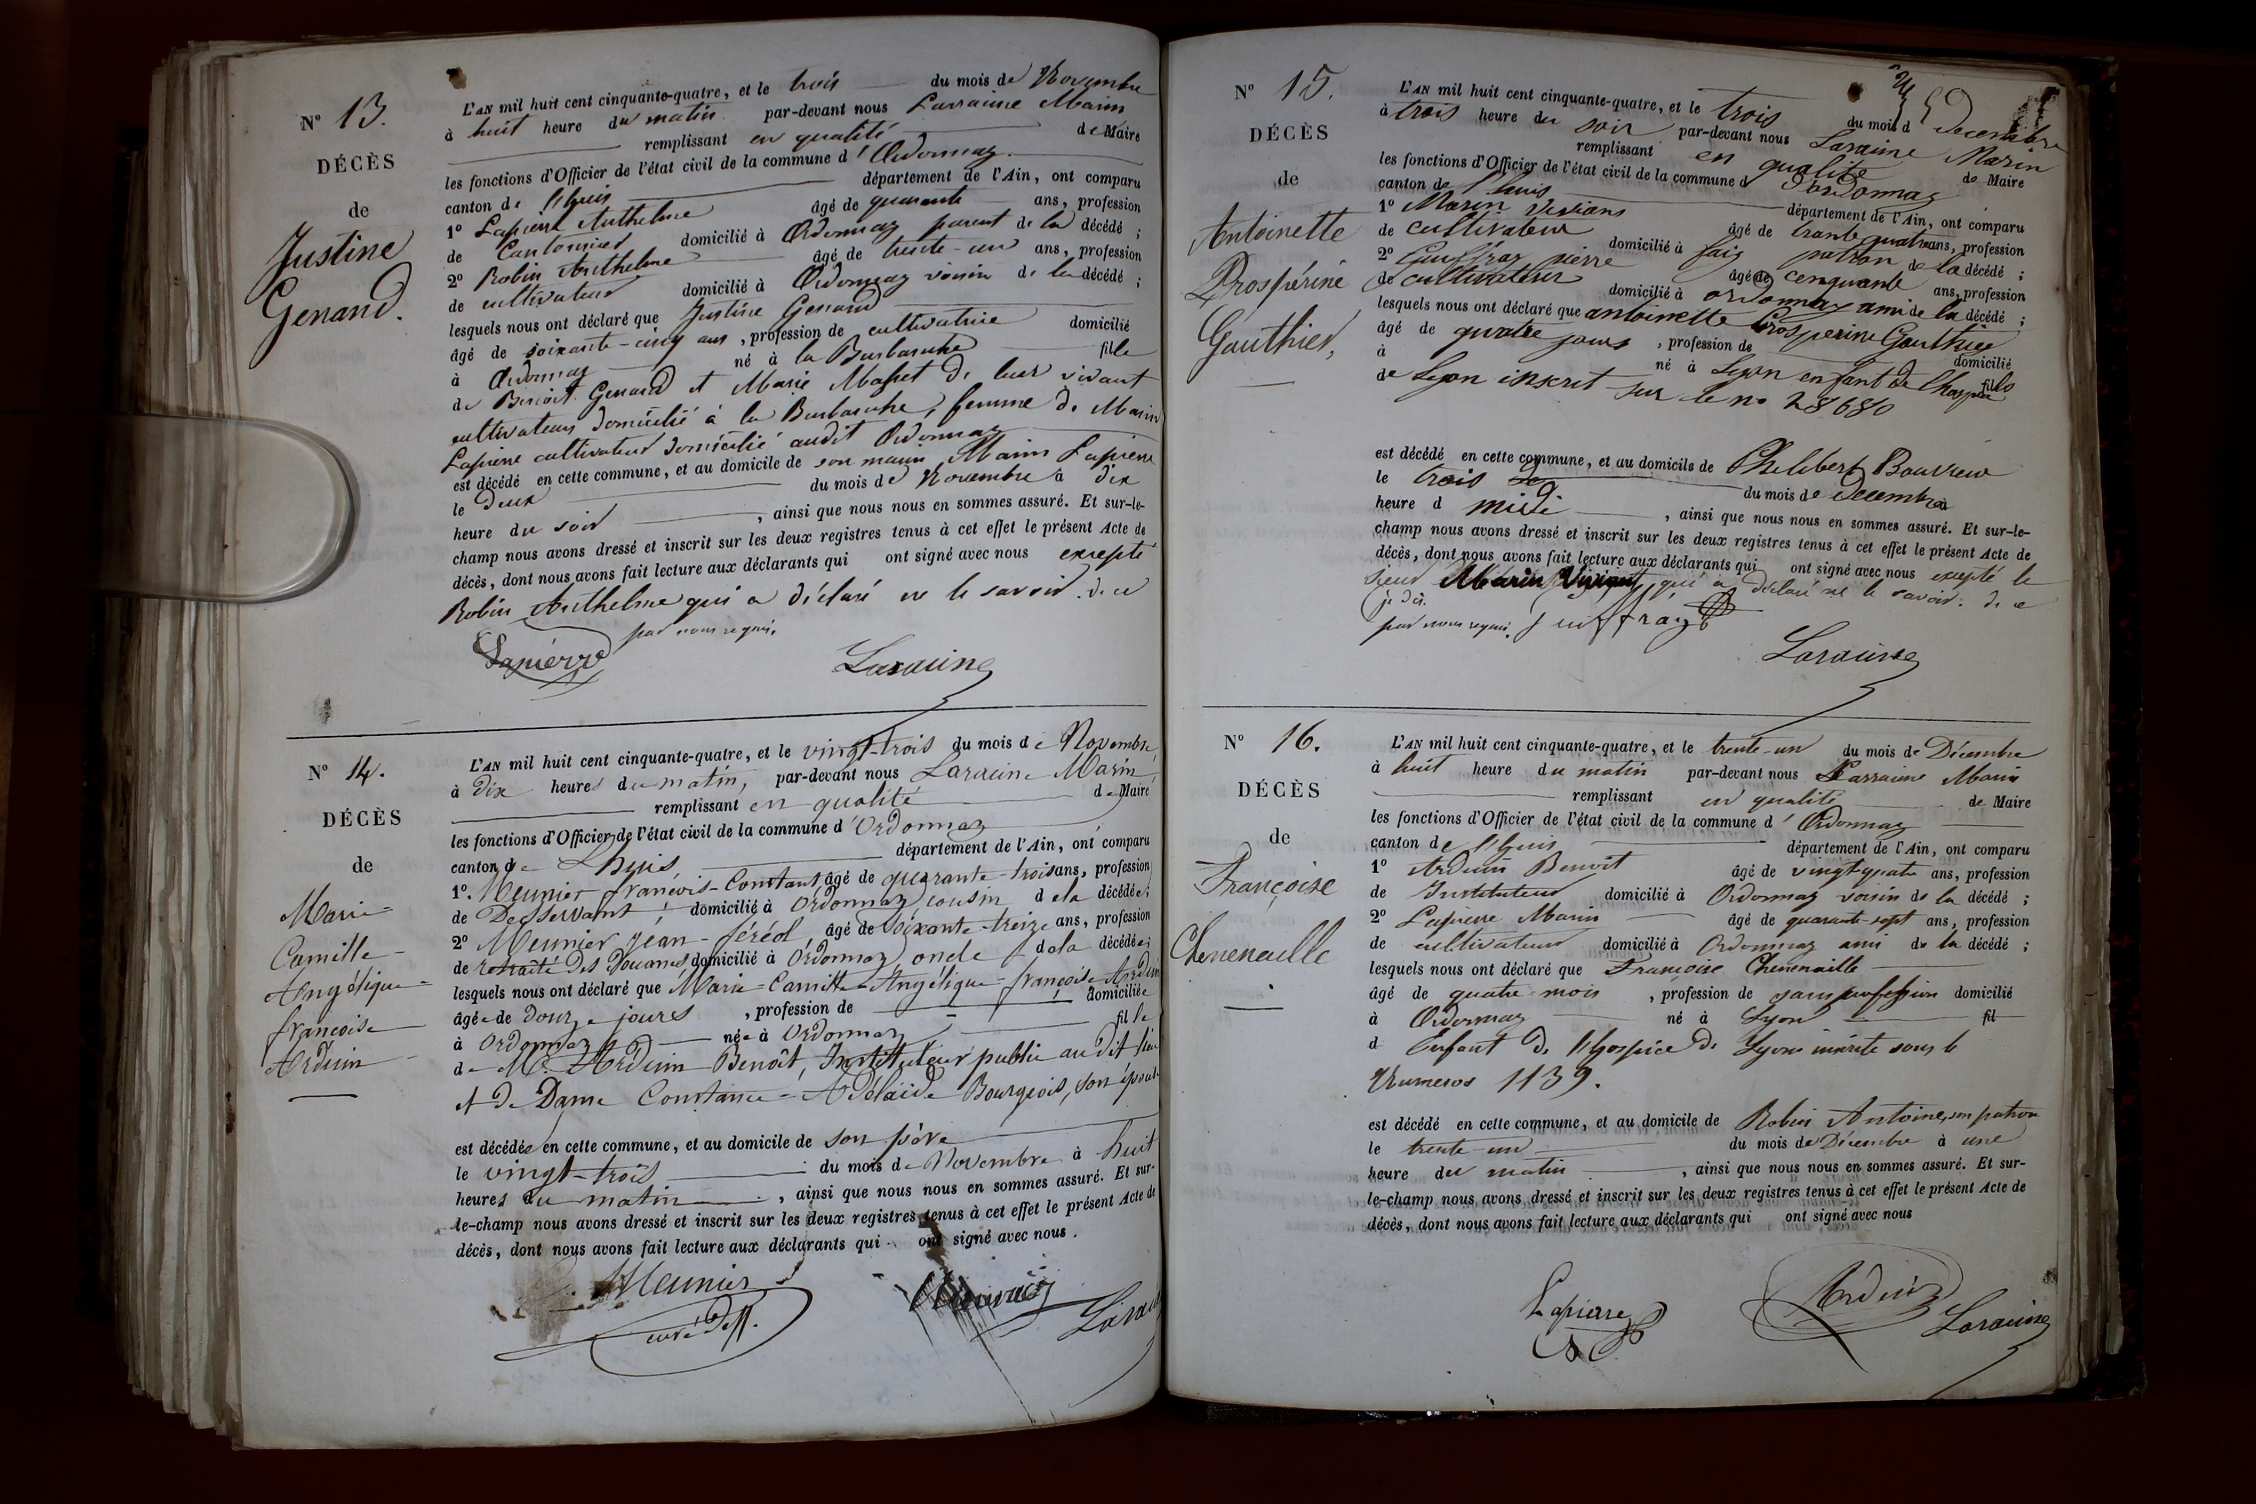 N° 13.
DÉCÈS
de
Justine
Genand.
L'AN mil huit cent cinquante-quatre, et le trois du mois de Novembre
à huit heure du matin par-devant nous Larraine Marin
remplissant en qualité de Maire
les fonctions d'Officier de l'état civil de la commune d'Ordonnaz
canton de Lhuis département de l'Ain, ont comparu
1° Lapierre Anthelme âgé de quarante ans, profession
de Cantonnier domicilié à Ordonnaz parent de la décédé ;
2° Robin Anthelme âgé de trente-un ans, profession
de cultivateur domicilié à Ordonnaz voisin de la décédé ;
lesquels nous ont déclaré que Justine Genand
âgé de soixante-cinq ans, profession de cultivatrice domicilié
à Ordonnaz né à la Burbanche fille
de Benoit Genand et Marie de leur vivant
cultivateurs domicilié à la Burbanche, femme de Marin
Lapierre cultivateur domicilié audit Ordonnaz
est décédé en cette commune, et au domicile de son marin Marin Lapierre
le deux du mois de Novembre à dix
heure du soir, ainsi que nous nous en sommes assuré. Et sur-le-
champ nous avons dressé et inscrit sur les deux registres tenus à cet effet le présent Acte de
décès, dont nous avons fait lecture aux déclarants qui ont signé avec nous excepté
Robin Anthelme qui a déclaré ne le savoir. de ce
par nous requis.
Lapierre Laraine
N° 14.
DÉCÈS
de
Marie-
Camille-
Angélique-
françoise
Arduin
L'AN mil huit cent cinquante-quatre, et le vingt-trois du mois de Novembre,
à dix heures du matin, par-devant nous Laraine Marin
remplissant en qualité de Maire
les fonctions d'Officier de l'état civil de la commune d'Ordonnaz
canton de Lhuis département de l'Ain, ont comparu
1°. Meunier françois-Constant âgé de quarante-trois ans, profession
de Desservant domicilié à Ordonnaz cousin de la décédée ;
2° Meunier Jean-féréol âgé de soixante-treize ans, profession
de retraité des Douanes domicilié à Ordonnaz oncle de la décédée ;
lesquels nous ont déclaré que Marie-Camille-Angélique-françoise Arduin
âgée de douze jours, profession de domiciliée
à Ordonnaz née à Ordonnaz fille
de Mr. Arduin Benoît, Instituteur public au dit lieu
et de Dame Constance-Adélaïde Bourgeois, son épouse
est décédée en cette commune, et au domicile de son père
le vingt-trois du mois de Novembre à huit
heures du matin, ainsi que nous nous en sommes assuré. Et sur-
le-champ nous avons dressé et inscrit sur les deux registres tenus à cet effet le présent Acte de
décès, dont nous avons fait lecture aux déclarants qui ont signé avec nous.
Meunier
curé dess.
N° 15.
DÉCÈS
de
Antoinette
Prospérine
Gauthier,
L'AN mil huit cent cinquante-quatre, et le trois du mois d Decembre
à trois heure du soir par-devant nous Laraine Marin
remplissant en qualite de Maire
les fonctions d'Officier de l'état civil de la commune d'ordonnaz
canton de Lhuis département de l'Ain, ont comparu
1° Marin âgé de trante quatre ans, profession
de cultivateur domicilié à patron de la décédé ;
2° pierre âgé de cenquante ans, profession
de cultivateur domicilié à ordonnaz ami de la décédé ;
lesquels nous ont déclaré que antoinette Prosperine Gauthier
âgé de quatre jours, profession de domicilié
à né à Lyon enfant de l'hospice fil
de Lyon inscrit sur le no 28680
est décédé en cette commune, et au domicile de Philibert
le trois du mois de Decembre à
heure d midi, ainsi que nous nous en sommes assuré. Et sur-le-
champ nous avons dressé et inscrit sur les deux registres tenus à cet effet le présent Acte de
décès, dont nous avons fait lecture aux déclarants qui ont signé avec nous excepté le
sieur Marin qui a déclaré ne le savoir. de ce
je dis.
par nous requis.
Laraine
N° 16.
DÉCÈS
de
Françoise
Chenenaille
L'AN mil huit cent cinquante-quatre, et le trente-un du mois de Décembre
à huit heure du matin par-devant nous Larraine Marin
remplissant en qualité de Maire
les fonctions d'Officier de l'état civil de la commune d'Ordonnaz
canton de Lhuis département de l'Ain, ont comparu
1° Arduin Benoit âgé de vingt-quatre ans, profession
de Instituteur domicilié à Ordonnaz voisin de la décédé ;
2° Lapierre Marin âgé de quarante-sept ans, profession
de cultivateur domicilié à Ordonnaz ami de la décédé ;
lesquels nous ont déclaré que Françoise Chenenaille
âgé de quatre mois, profession de sans profession domicilié
à Ordonnaz né à Lyon fil
d Enfant de l'hospice de Lyon inscrite sous le
Numeros 1139.
est décédé en cette commune, et au domicile de Robin Antoine, son patron
le trente-un du mois de Décembre à une
heure du matin, ainsi que nous nous en sommes assuré. Et sur-
le-champ nous avons dressé et inscrit sur les deux registres tenus à cet effet le présent Acte de
décès, dont nous avons fait lecture aux déclarants qui ont signé avec nous
Lapierre Arduin Laraine